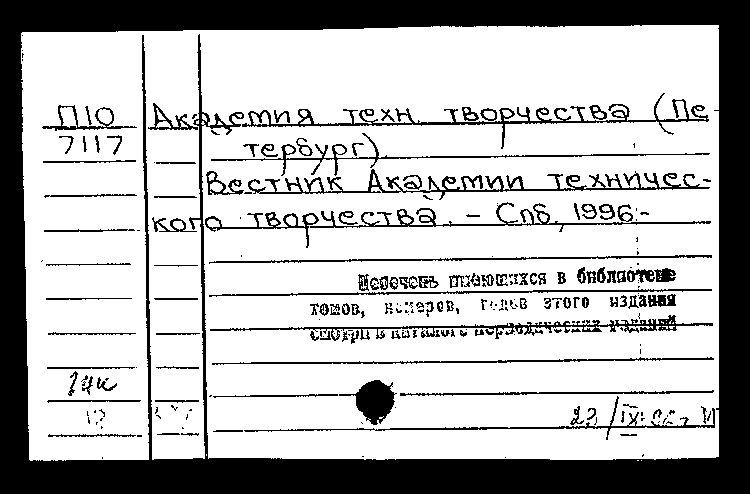 П10 Академия техн. творчества (Пе-
7117 тербург)
Вестник Академии техничес-
кого творчества. - Спб., 1996-
Перечень имеющихся в библиотеке
томов, номеров, годов этого издания
смотри в каталоге периодических изданий
14к
23/IX-96г